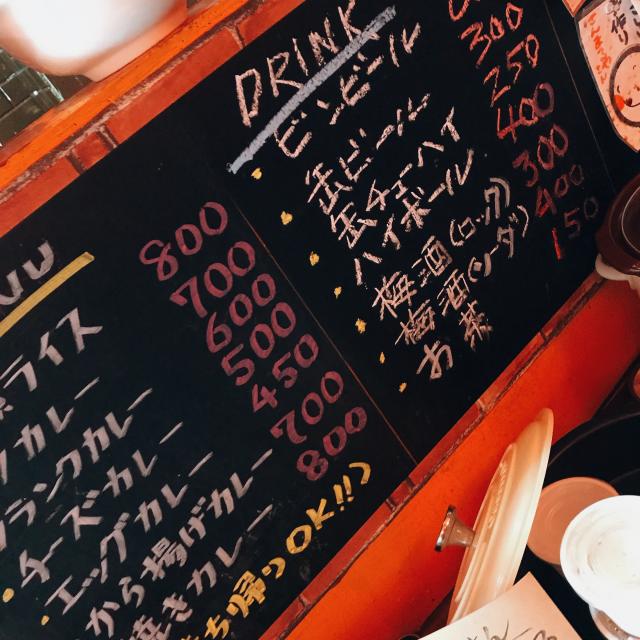 ライス 800
カレー 700
ブラックカレー 600
チーズカレー 500
エッグカレー 450
から揚げカレー 700
焼きカレー 800
持ち帰りOK!!
DRINK
ビンビール
缶ビール 300
缶チューハイ 250
ハイボール 400
梅酒(ロック) 300
梅酒(ソーダ) 400
お茶 150